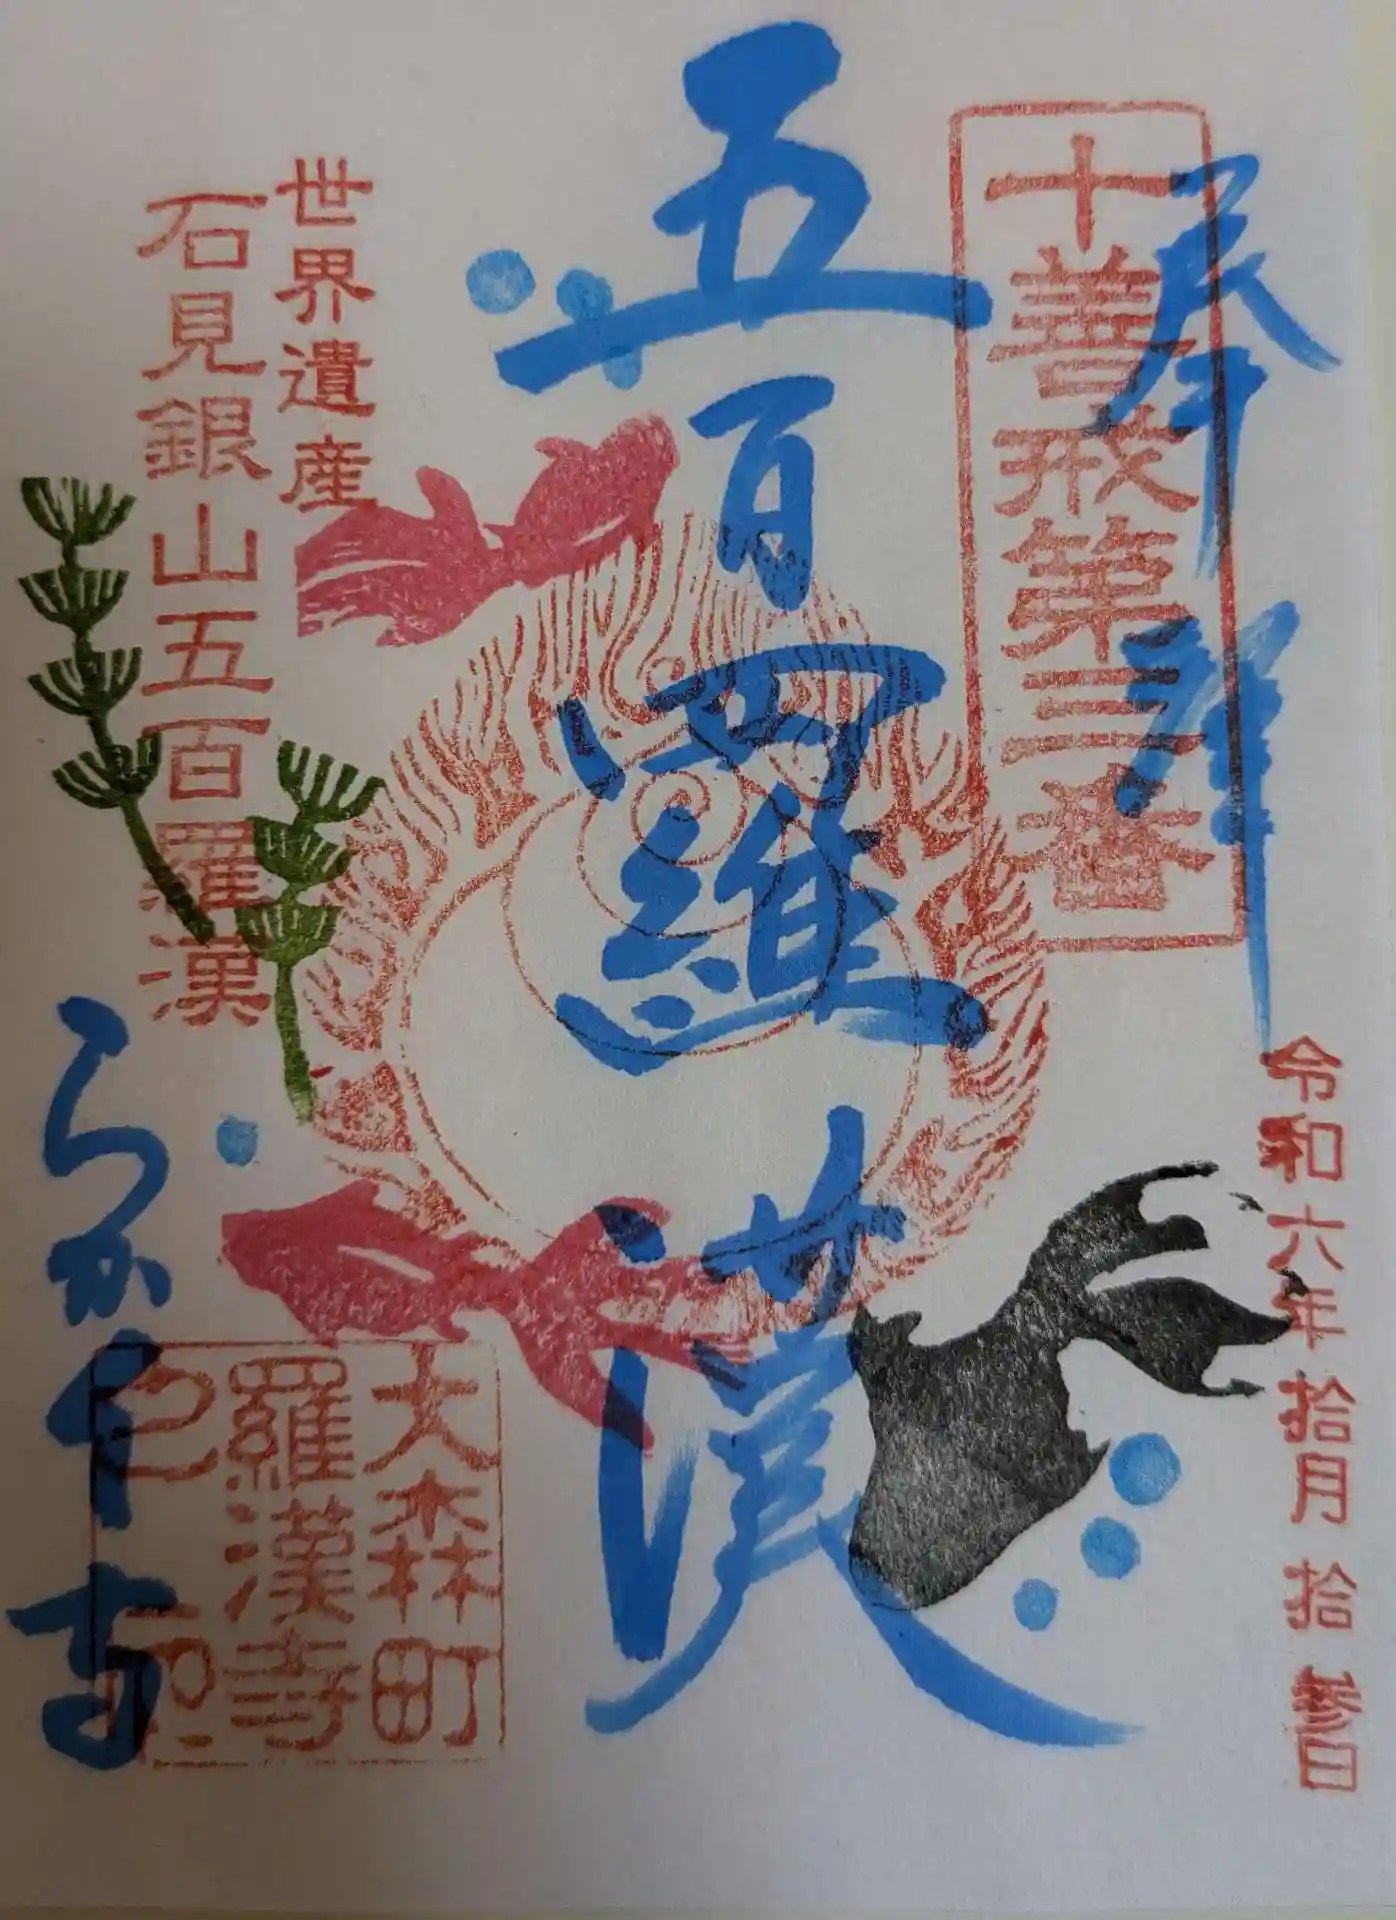 奉拝
十善戒第三番
令和六年拾月拾参日
五百羅漢
世界遺産
石見銀山五百羅漢
らかん寺
大森町
羅漢寺
之印